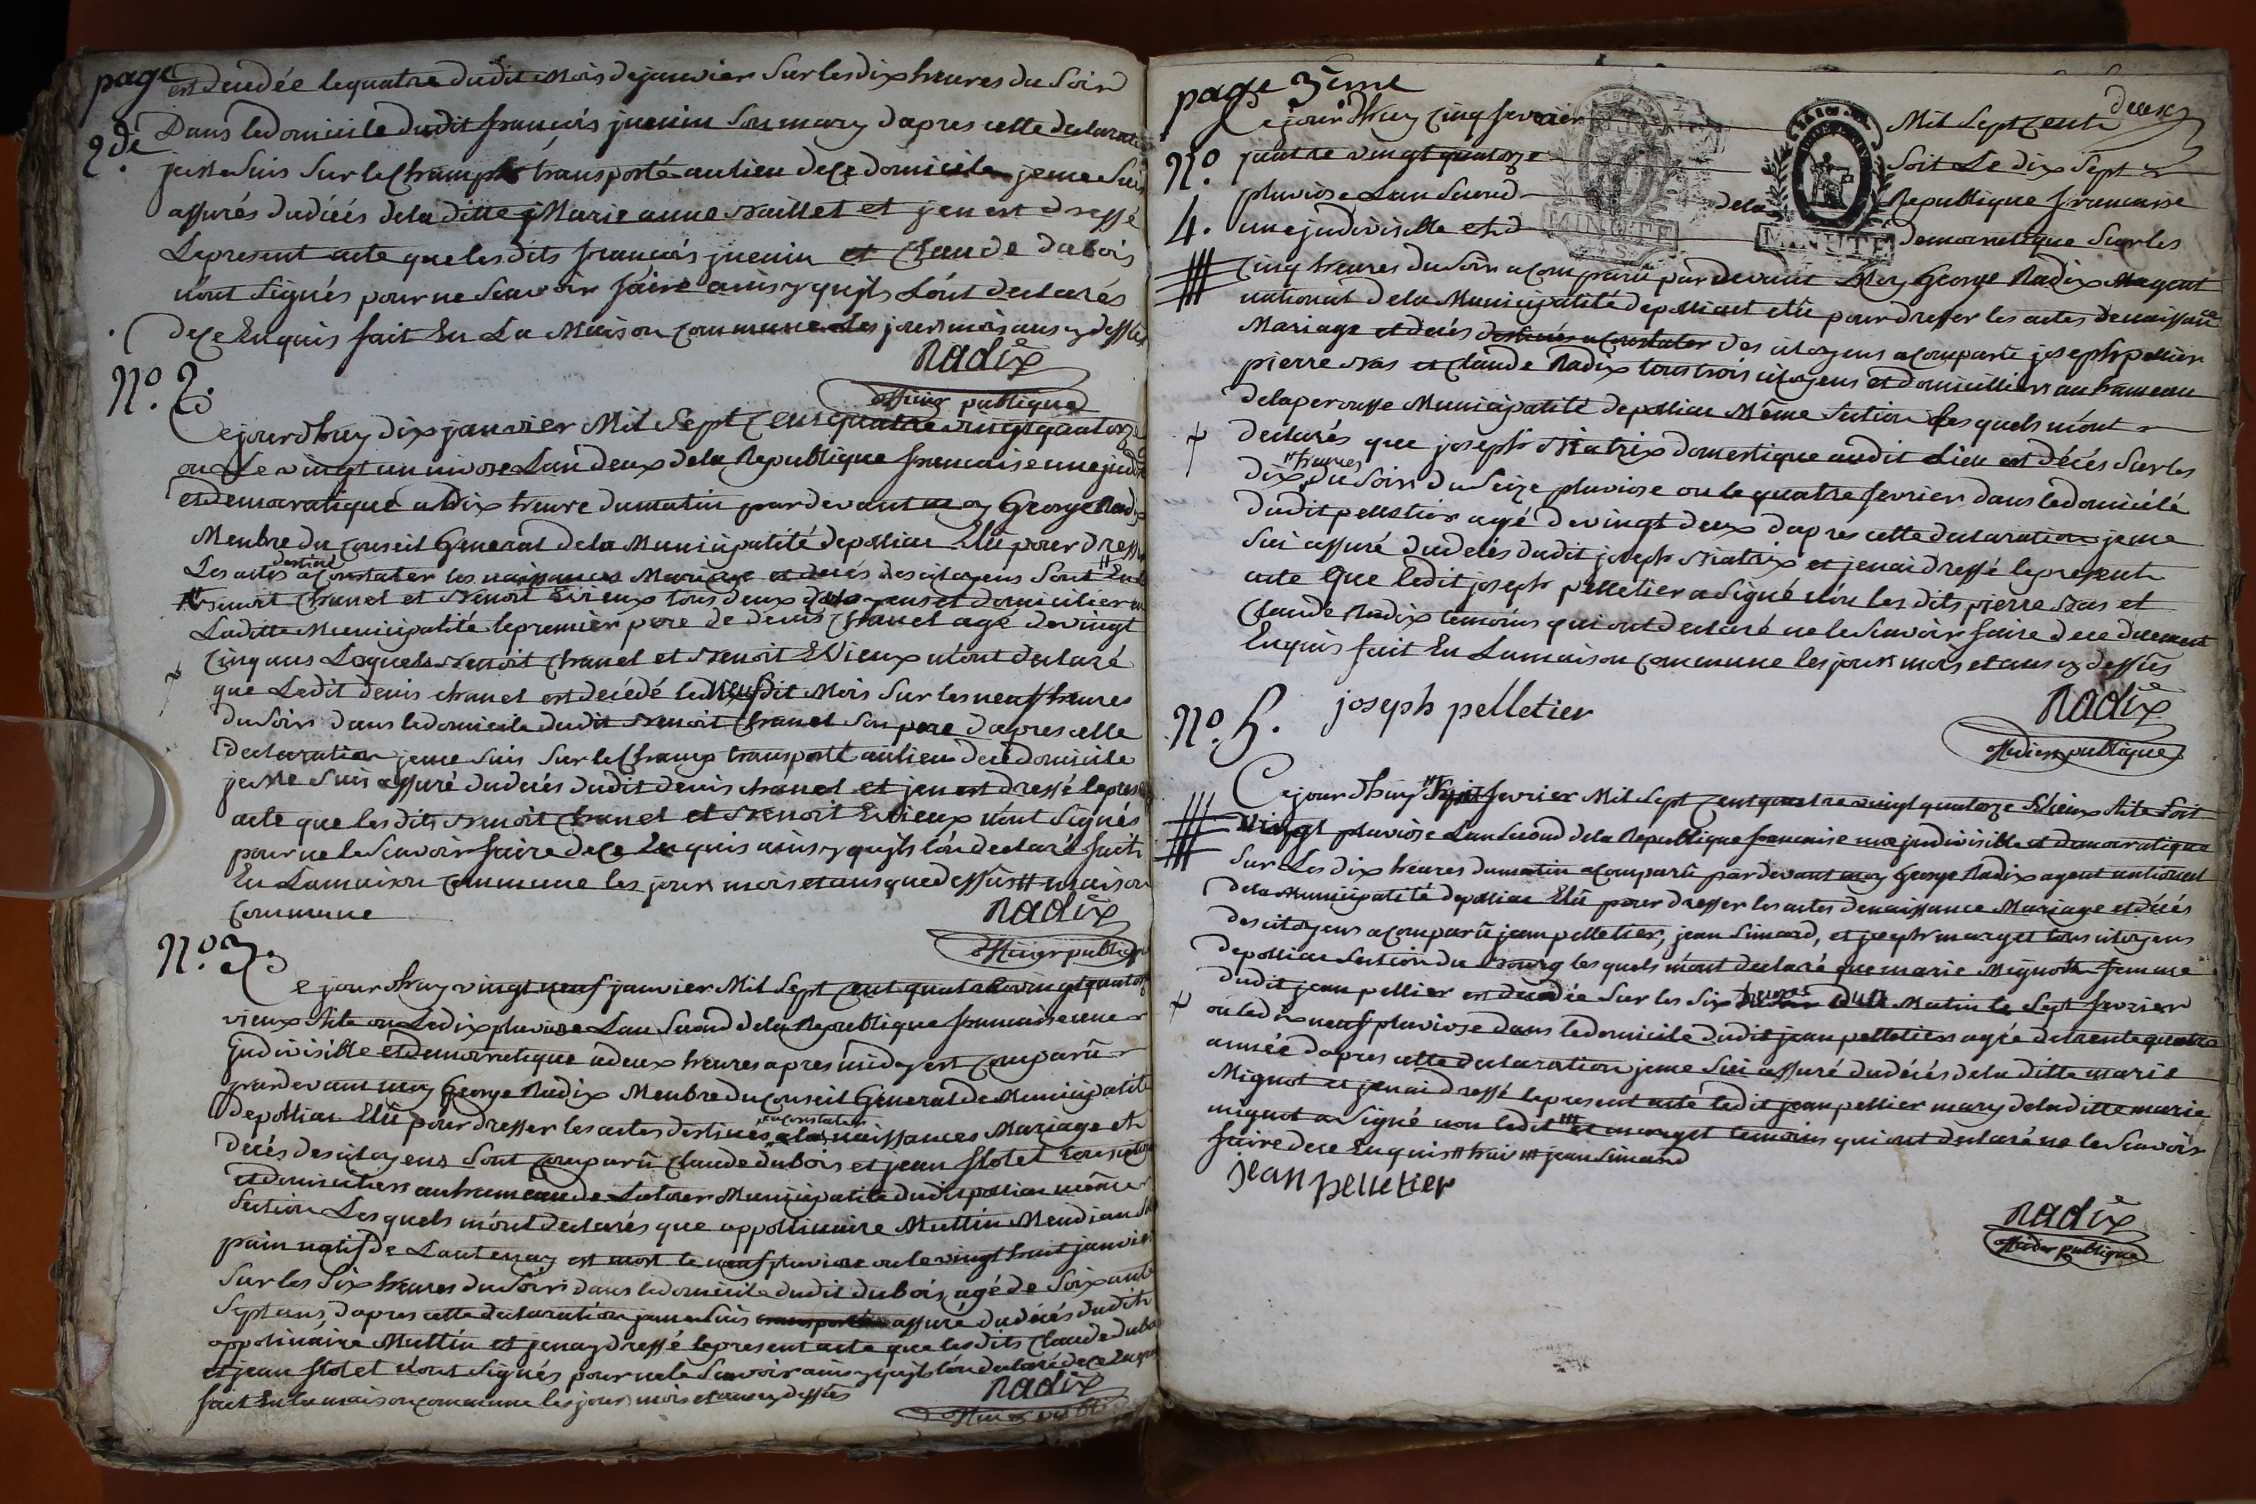 page
2de
est decedée le quatre dudit Mois de janvier Sur les dix heures du Soir
Dans le domicile dudit francois juenin Son mary d'apres cette declaration
je me Suis Sur le Champ transporté au lieu de ce domicile je me Suis
assurés du décés de la ditte Marie anne Maillet et j'en est dressé
Le present acte que les dits francois juenin et Claude dubois
n'ont Signés pour ne Scavoir faire ainsy qu'ils L'ont declarés
de ce Enquis fait En La Maison Commune les jour mois ans cy dessus
Radix
officier publique
N.o 2.
Ce jourd'huy dix janvier Mil Sept Cens quatre vingt quatorze
ou Le vingt un nivose L'an deux de la Republique francaise une
et democratique a dix heure du matin par devant moy George Radix
Membre du Conseil General de la Municipalité de polliat Elû pour dresser
Les actes destinés a Constater les naissances Mariage et decés des citoyens Sont
Benoit Chanel et Benoit Evieux tous deux citoyens et domicilier
La ditte Municipalité le premier pere de denis Chanel agé de vingt
Cinq ans Lequels Benoit Chanel et Benoit Evieux m'ont declaré
que Ledit denis chanel est decédé le neuf dit Mois Sur les neuf heures
du Soir dans le domicile dudit Benoit Chanel Son pere d'apres cette
Declaration je me Suis Sur le Champ transporté au lieu de ce domicile
je Me Suis assuré du decés dudit denis chanel et j'en est dressé le present
acte que les dits Benoit Chanel et Benoit Evieux n'ont Signés
pour ne le Scavoir faire de ce Enquis ainsy qu'ils l'on declaré fait
En La maison Commune les jour mois et ans que dessus maison
Commune
Radix
officier publique
N.o 3.
Ce jourd'huy vingt neuf janvier Mil Sept Cent quatre vingt quatorze
vieux stile ou Le dix pluviose L'an Second de la Republique francaise une
indivisible et democratique a deux heures apres midy est Comparû
par devant moy George Radix Membre du Conseil General de Municipalité
de polliat Elû pour dresser les actes destinés a constater les naissances Mariage et
decés des citoyens Sont Comparû Claude dubois et jean flotet tous
et domiciliers au hameau de Latour Municipalité dudit polliat même
Section Les quels m'ont declarés que appollinaire Muttin Mendian Son
pain natif de Lantenay est mort le neuf pluviose ou le vingt huit janvier
Sur les Six heures du Soir dans le domicile dudit dubois, agé de Soixante
Sept ans, d'apres cette declaration je me Suis assuré du décés dudit
appolinaire Muttin et j'en ay dressé le present acte que les dits Claude dubois
et jean flotet n'ont Signés pour ne le Scavoir ainsy qu'ils l'on declaré de ce Enquis
fait En la maison commune les jour mois et an cy dessus
Radix
page 3eme
deux
Ce jour d'huy Cinq fevrier Mil Sept Cent
N.o quatre vingt quatorze Soit Le dix Sept
4. pluviose L'an Second de la Republique francaise
une indivisible et d democratique Sur les
MINUTE
MINUTE
Cinq heures du Soir a Comparû par devant Moy George Radix agent
national de la Municipalité de polliat elû pour dresser les actes de naissance
Mariage et decés destinés a Constater des citoyens a Comparû joseph pellier
pierre Bas et Claude Radix tous trois citoyens et domicilliers au hameau
de la perousse Municipalité de polliat Même Section Les quels m'ont
declarés que joseph Matrix domestique audit Lieu est décés Sur les
dix heures du Soir du Seize pluviose ou le quatre fevrier dans le domicilé
dudit pelletier agé de vingt deux d'apres cette declaration je me
Sui assuré du decés dudit joseph Matrix et j'en ai dressé le present
acte Que ledit joseph pelletier a Signé non les dits pierre Bas et
Claude Radix temoins qui ont declaré ne le Scavoir faire de ce duement
Enquis fait En La maison Commune les jour mois et ans cy dessus
joseph pelletier
Radix
officier publique
N.o 5.
Ce jour d'huy huit fevrier Mil Sept Cent quatre vingt quatorze vieux stile Soit
vingt pluviose L'an Second de la Republique francaise une indivisible et democratique
Sur Les dix heures du matin a Comparû par devant moy George Radix agent national
de la Municipalité de polliat Elû pour dresser les actes de naissance Mariage et décés
des citoyens a Comparû jean pelletier, jean Simard, et joseph marget tous citoyens
de polliat Section du Bourg les quels m'ont declaré que marie Mignot femme
dudit jean pellier est decedée Sur les Six heures du Matin le Sept fevrier
ou le dix neuf pluviose dans le domicile dudit jean pelletier agée de trente quatre
année d'apres cette declaration je me Sui assuré du décés de la ditte marie
Mignot et j'en ai dressé le present acte ledit jean pellier mary de la ditte marie
mignot a Signé non ledit et marget temoins qui ont declaré ne le Scavoir
faire de ce Enquis jean Simard
jean pelletier
Radix
officier publique